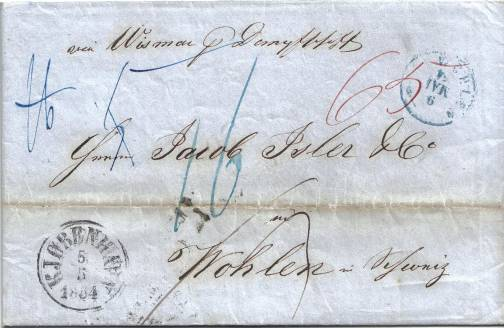 via Wismar p Dampfschiff
65
9
MAI
16
Herren Jacob Isler & Co
in
Wohlen in Schweiz
KJØBENHAVN
5
5
1854